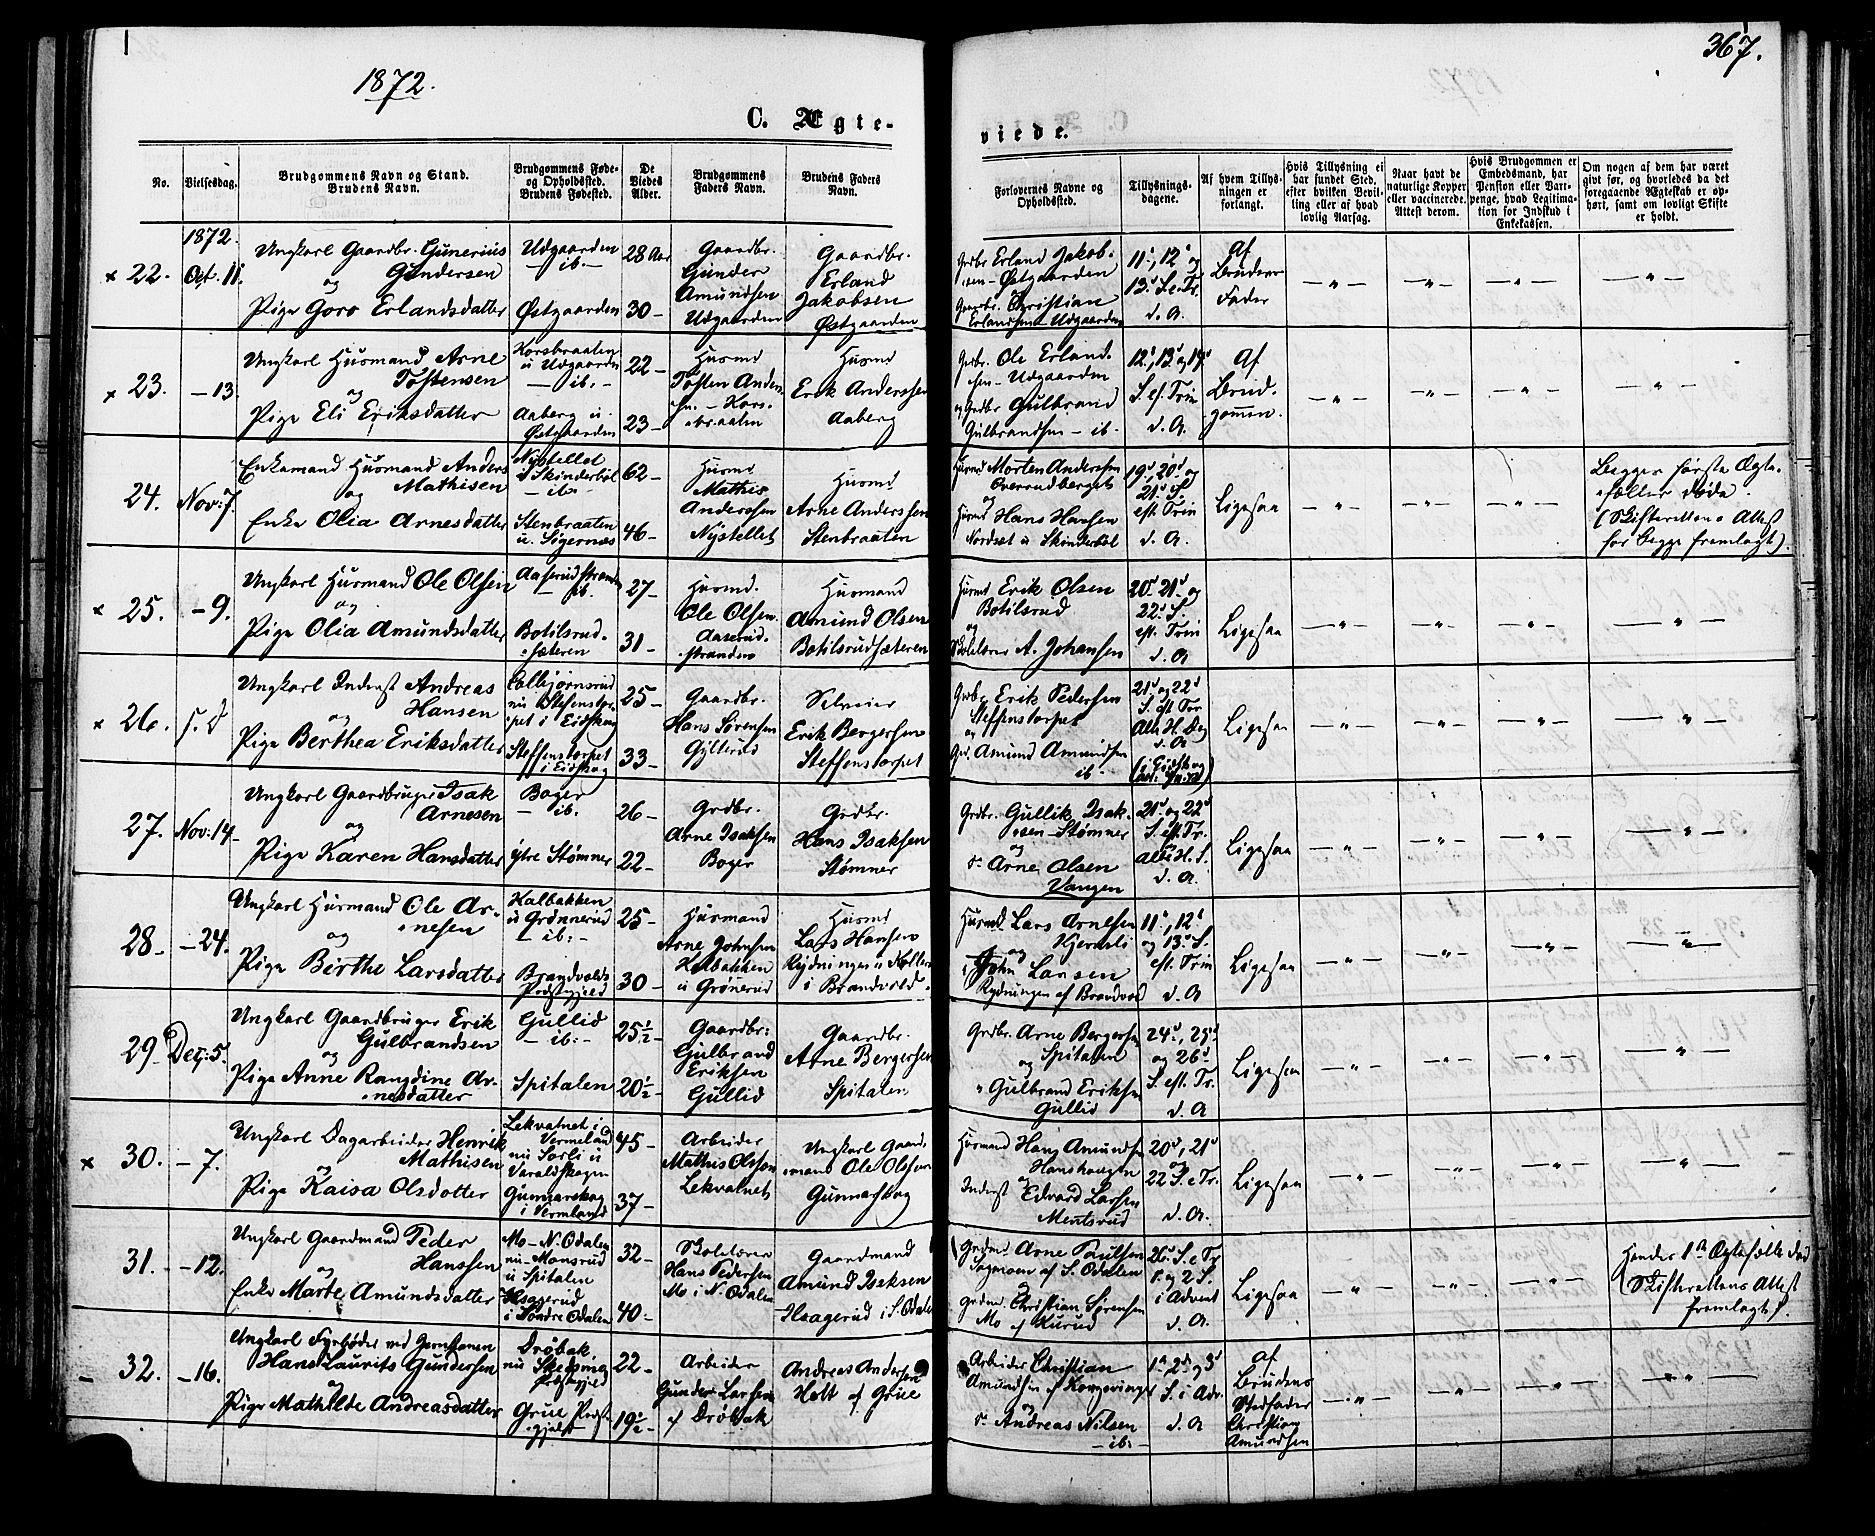 1872.
367.
C. Ægte-
viede.
No.
Vielsesdag.
Brudgommens Navn og Stand.
Brudens Navn.
Brudgommens Føde-
og Opholdssted.
Brudens Fødested.
De
Viedes
Alder.
Brudgommens
Faders Navn.
Brudens Faders
Navn.
Forlovernes Navne og
Opholdssted.
Tillysnings-
dagene.
Af hvem Tillys-
ningen er
forlangt.
Hvis Tillysning ei
har fundet Sted,
efter hvilken Bevil-
ling eller af hvad
lovlig Aarsag.
Naar havt de
naturlige Kopper
eller vaccinerede.
Attest derom.
Hvis Brudgommen er
Embedsmand, har
Pension eller Vart-
penge, hvad Legitima-
tion for Indskud i
Enkekassen.
Om nogen af dem har været
givt før, og hvorledes da det
foregaaende Ægteskab er op-
hørt, samt om lovligt Skifte
er holdt.
1872.
× 22.
Oct. 11.
Ungkarl Gaardbr. Gunerius
Gundersen
og
Pige Goro Erlandsdatter
Udgaarden
— ib. —
Østgaarden
28 Aar
30 —
Gaardbr.
Gunder
Amundsen
Udgaarden
Gaardbr.
Erland
Jakobsen
Østgaarden
Grdbr. Erland Jakob-
sen - Østgaarden
Gaardbr. Christian
Erlandsen - Udgaarden
11', 12' og
13' S. e. Tr.
d. A.
Af
Brudens
Fader
× 23.
— 13.
Ungkarl Husmand Arne
Tostensen
og
Pige Eli Eriksdatter
Korsbraaten
u Udgaarden
— ib: —
Aaberg u.
Østgaarden
22 —
23 —
Husmd
Tosten Anders-
sen - Kors-
braaten
Husmd
Erik Anderssen
Aaberg
Grdbr. Ole Erland-
sen - Udgaarden
og Grdbr Gulbrand
Gulbrandsen - ib.
12', 13' og 19'
S. ef. Trin
d. A.
Af
Brud-
gommen.
24.
Nov: 7.
Enkemand Husmand Anders
Mathisen
og
Enke Olia Arnesdatter
Nystellet
u Skinderböl
— ib. —
Stenbraaten
u. Sigernæs
62 —
46 —
Husmd
Mathis
Anderssen
Nystellet
Husmd
Arne Anderssen
Stenbraaten
Husmd Morten Anderssen
Overrudberget
og
Husmd Hans Hansen
Nordset u Skinderböl
19', 20' og
21' S.
eft. Trin
d. A.
Ligesaa
Begges første Ægte-
fæller døde.
(Skifterettens Attest
for Begge fremlagt).
× 25.
— 9.
Ungkarl Husmand Ole Olsen
og
Pige Olia Amundsdatter
Aaserudstranden
— ib.
Botilsrud-
sæteren
27 —
31 —
Husmd.
Ole Olsen
Aaserud-
stranden
Husmand
Amund Olsen
Botilsrudsæteren
Husmd Erik Olsen
Botilsrud
og
Skolelærer A. Johansen
20' 21' og
22' S.
eft. Trin
d. A
Ligesaa
× 26.
s. D
Ungkarl Inderst Andreas
Hansen
og
Pige Berthea Eriksdatter
Colbjørnsrud
nu Steffenstor-
pet i Eidskog
Steffenstorpet
i Eidskog
25 —
33 —
Gaardbr.
Hans Sørensen
Selveier
Erik Bergersen
Steffenstorpet
Grdbr Erik Pedersen
Steffenstorpet
og
Amund Amundsen
ib.
21' og 22'
S. eft Tr
Alle H. Dag
d. A
Ligesaa
27.
Nov: 14
Ungkarl Gaardbruger Isak
Arnesen
og
Pige Karen Hansdatter
Boger
— ib.
ystre Stømner
26 —
22 —
Grdbr.
Arne Isaksen
Boger
Grdbr.
Hans Isaksen
Stømner
Grdbr. Gullik Isak-
sen - Stømner
og
Arne Olsen
Vangen
21' og 22'
S. eft Tr.
Alle H. S.
d. A.
Ligesaa
28 —
— 24.
Ungkarl Husmand Ole Ar-
nesen
og
Pige Berthe Larsdatter
Kalbakken
u Grønnerud
— ib: —
Brandvolds
Præstegjeld
25 —
30 —
Husmand
Arne Johnsen
Kalbakken
u Grønerud
Husmd
Lars Hansen
Rydningen u Møller
i Brandvold
Husmd Lars Arnesen
Kjernsli
og
John Larsen
Rydningen af Brandvold
11', 12'
og 13' S.
eft. Trin
d. A
Ligesaa
29
Dec: 5.
Ungkarl Gaardbruger Erik
Gulbrandsen
og
Pige Anne Rangdine Ar-
nesdatter
Gullid
— ib: —
Spitalen
25½
20½
Gaardbr:
Gulbrand
Eriksen
Gullid
Gaardbr.
Arne Bergersen
Spitalen
Grdbr. Arne Bergersen
og Spitalen
" Gulbrand Eriksen
Gullid
24', 25'
og 26'
S. eft. Tr.
d. A
Ligesaa
× 30.
— 7.
Ungkarl Dagarbeider Henrik
Mathisen
og
Pige Kaisa Olsdotter
Lekvatnet i
Vermeland
nu Sorli u
Varaldskogen
Gunnarskog
i Vermland
45 —
37 —
Arbeider
Mathis Olsson
Lekvatnet
Ungkarl Gaard-
mand Ole Olsson
Gunnarskog
Husmand Hans Amundsen
Hanshaugen
og
Inderst Edvard Larsen
Mentsrud
20', 21'
og
22 S. e Tr.
d. A.
Ligesaa
31.
— 12.
Ungkarl Gaardmand Peder
Hanssen
og
Enke Marte Amundsdatter
Mo - N. Odalen
nu Monsrud
u Spitalen
Haagerud
i Søndre Odalen
32 —
40 —
Skolelærer
Hans Pedersen
Mo i N. Odalen
Gaardmand
Amund Isaksen
Haagerud i S. Odalen
Grdmd Arne Paulsen
Sagmoen af S. Odalen
Grdmd. Christian Sørensen
Mo af Kurud
26' S. e Tr
1. og 2 S.
i Advent
d. A.
Ligesaa
Hendes 1ste Ægtefælle død
(Skifterettens Attest
fremlagt).
— 32.
— 16.
Ungkarl Fyrbøder ved Jernbanen
Hans Laurits Gundersen
og
Pige Mathilde Andreasdatter
Drøbak,
nu Skedsmo
Præstegjeld
Grue Præste-
gjeld
22 —
19½
Arbeider
Gunder Larsen
af Drøbak
Andreas Andersen
Holt af Grue
Arbeider Christian
Amundsen af Kongsvinger
og
Andreas Nilsen
— ib: —
1' 2' og 3'
S. i Adv.
d. A
af
Brudens
Stedfader
Christian
Amundsen